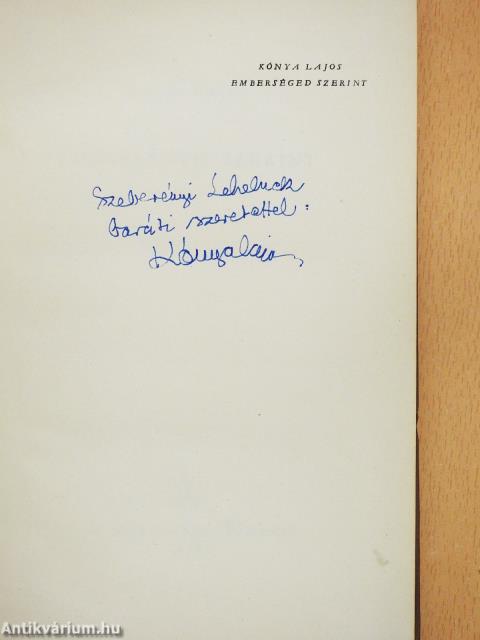 KÓNYA LAJOS
EMBERSÉGED SZERINT
Szeberényi Lehelnek
baráti szeretettel:
Kónya Lajos
Antikvárium.hu